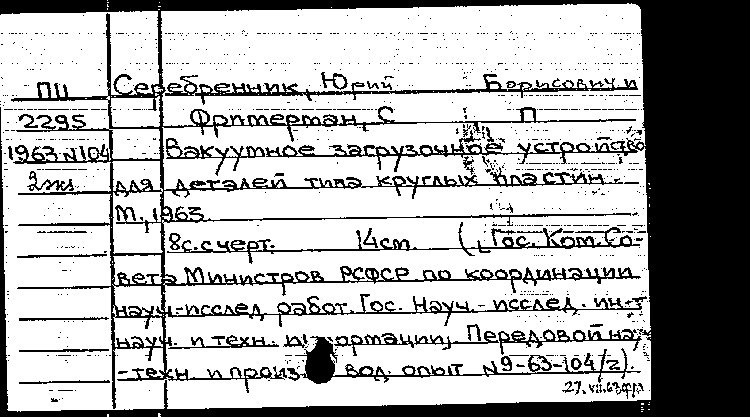 ПЦ Серебренник, Юрий Борисович и
2295 Фритерман, С П
1963 N104 Вакуумное загрузочное устройство
2 экз для деталей типа круглых пластин.
М., 1963
8с. с черт. 14см. (Гос. Ком. Со-
вета Министров РСФСР по координации
науч-исслед. работ. Гос. Науч.-исслед. ин-т
науч. и техн. информации, Передовой науч
-техн. и производ. опыт N9-63-104/2).
27.VII.63